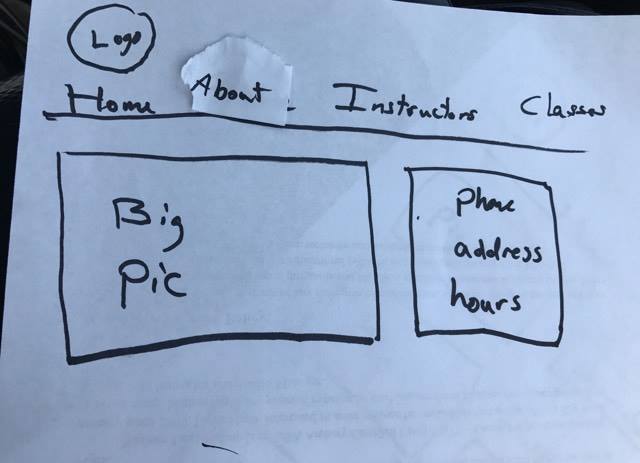 Logo
Home About Instructors Classes
Big
Pic
phone
address
hours